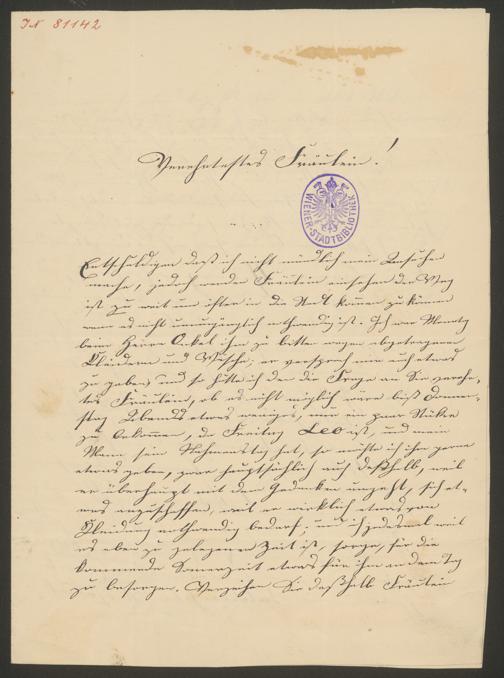 IN 81142
Verehrtestes Fräulein!
WIENER-STADTBIBLIOTHEK
Entschuldigen daß ich nicht mündlich mein Ansuchen
mache, jedoch werden Fräulein einsehen der Weg
ist zu weit um öfter in die Stadt kommen zu können
wenn es nicht unumgänglich nothwendig ist. Ich war Montag
beim Herrn Onkel ihn zu bitten wegen abgetragenen
Kleidern und Wäsche; er versprach mir auch etwas
zu geben, und so hätte ich den die Frage an Sie verehr-
tes Fräulein, ob es nicht möglich wäre biß Donner-
stag Abends etwas weniges, nur ein paar Stücke
zu bekommen, da Freitag Leo ist, und mein
Mann sein Nahmenstag hat, so möchte ich ihm gerne
etwas geben, zwar hauptsächlich auch deßhalb, weil
er überhaupt mit dem Gedanken umgeht, sich et-
was anzuschaffen, weil er wirklich etwas von
Kleidung nothwendig bedarf; und ich jedesmal weil
es eben zu gelegener Zeit ist, sorge, für die
kommende Sommerzeit etwas für ihn an dem Tag
zu besorgen. Verzeihen Sie deßhalb Fräulein